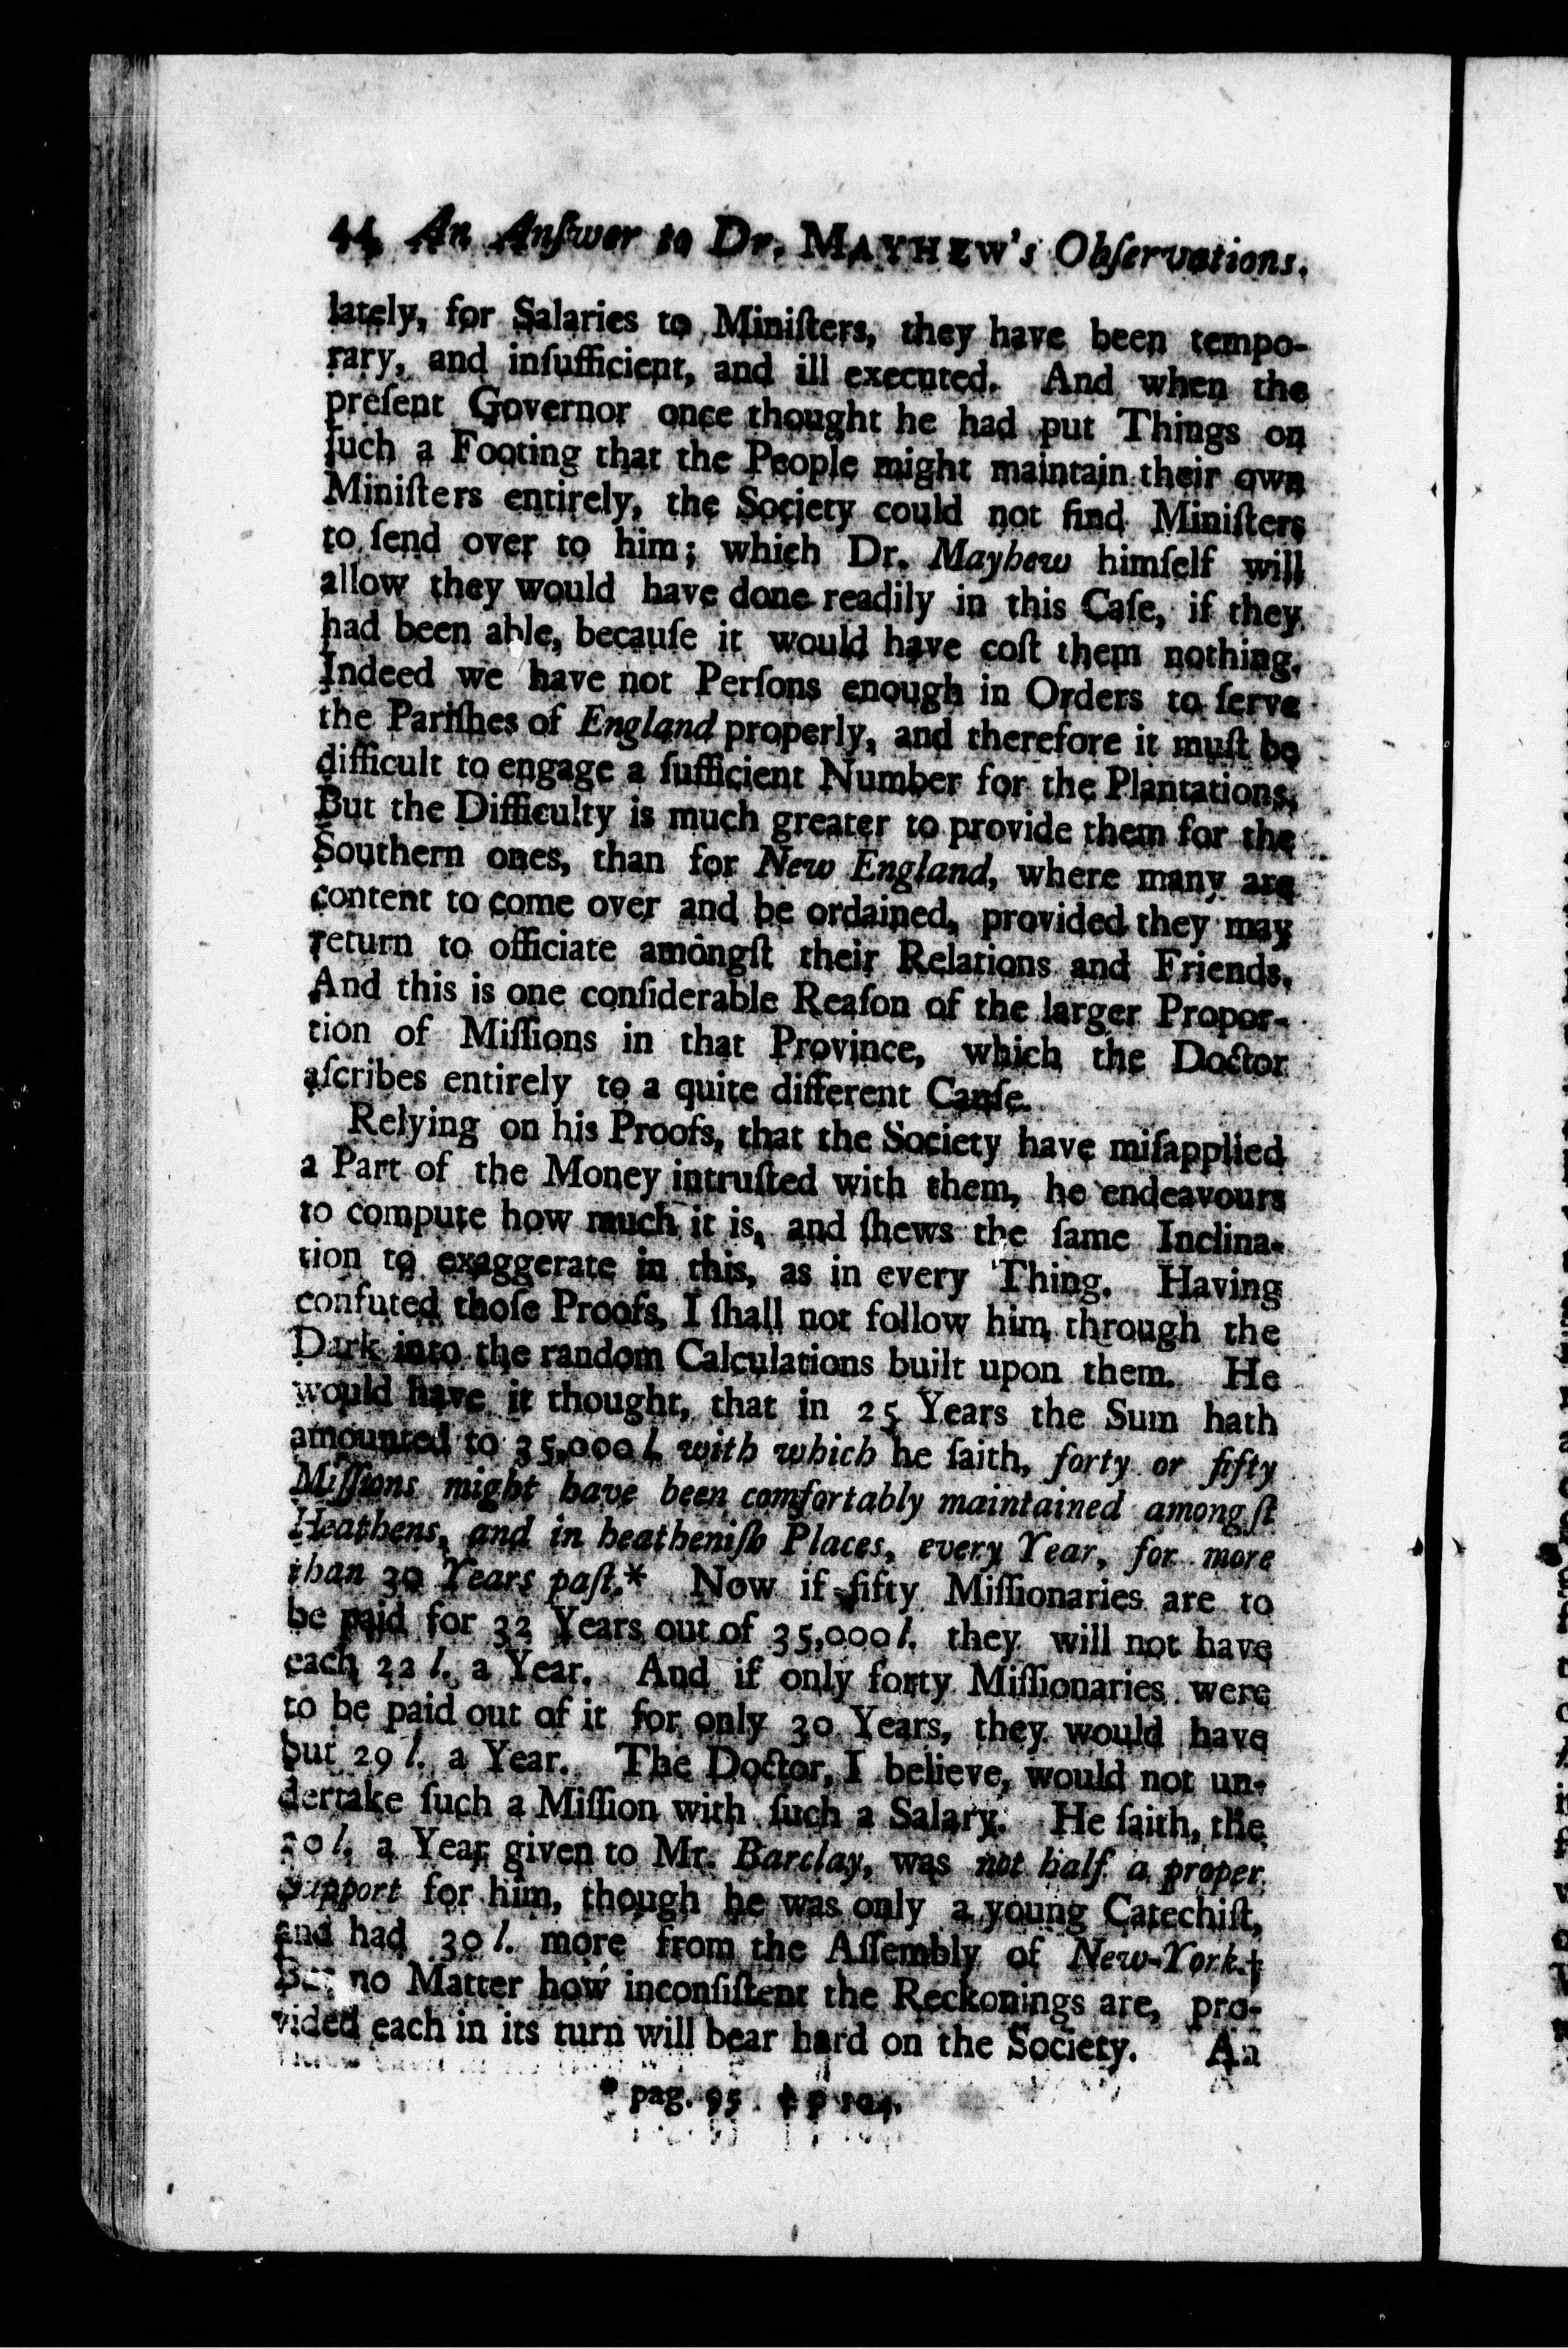 44 An Anſwer to Dr. MAYHEW's Obſervations.
lately, for Salaries to Miniſters, they have been tempo-
rary, and inſufficient, and ill executed. And when the
preſent Governor once thought he had put Things on
ſuch a Footing that the People might maintain their own
Miniſters entirely, the Society could not find Miniſters
to ſend over to him; which Dr. Mayhew himſelf will
allow they would have done readily in this Caſe, if they
had been able, becauſe it would have coſt them nothing.
Indeed we have not Perſons enough in Orders to ſerve
the Pariſhes of England properly, and therefore it muſt be
difficult to engage a ſufficient Number for the Plantations.
But the Difficulty is much greater to provide them for the
Southern ones, than for New England, where many are
content to come over and be ordained, provided they may
return to officiate amongſt their Relations and Friends.
And this is one conſiderable Reaſon of the larger Propor-
tion of Miſſions in that Province, which the Doctor
aſcribes entirely to a quite different Cauſe.
Relying on his Proofs, that the Society have miſapplied
a Part of the Money intruſted with them, he endeavours
to compute how much it is, and ſhews the ſame Inclina-
tion to exaggerate in this, as in every Thing. Having
confuted thoſe Proofs, I ſhall not follow him through the
Dark into the random Calculations built upon them. He
would have it thought, that in 25 Years the Sum hath
amounted to 35,000 l. with which he ſaith, forty or fifty
Miſſions might have been comfortably maintained amongſt
Heathens, and in heatheniſh Places, every Year, for more
than 30 Years paſt.* Now if fifty Miſſionaries are to
be paid for 32 Years out of 35,000 l. they will not have
each 22 l. a Year. And if only forty Miſſionaries were
to be paid out of it for only 30 Years, they would have
but 29 l. a Year. The Doctor, I believe, would not un-
dertake ſuch a Miſſion with ſuch a Salary. He ſaith, the
20 l. a Year given to Mr. Barclay, was not half a proper
Support for him, though he was only a young Catechiſt,
and had 30 l. more from the Aſſembly of New-York.‡
But no Matter how inconſiſtent the Reckonings are, pro-
vided each in its turn will bear hard on the Society. An
* pag. 95. ‡ p 104.